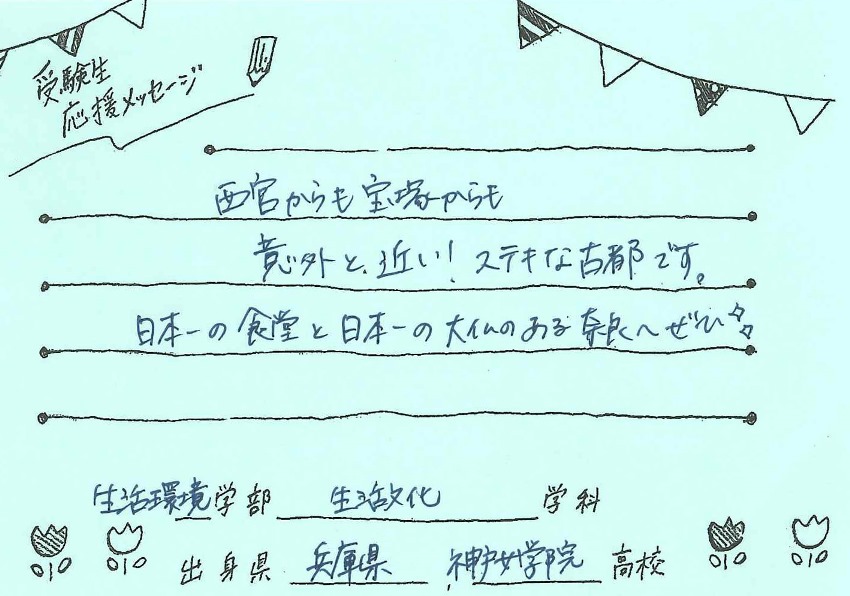 受験生
応援メッセージ
西宮からも宝塚からも
意外と、近い！ステキな古都です。
日本一の食堂と日本一の大仏のある奈良へぜひ
生活環境学部 生活文化 学科
出身県 兵庫県 神戸女学院 高校